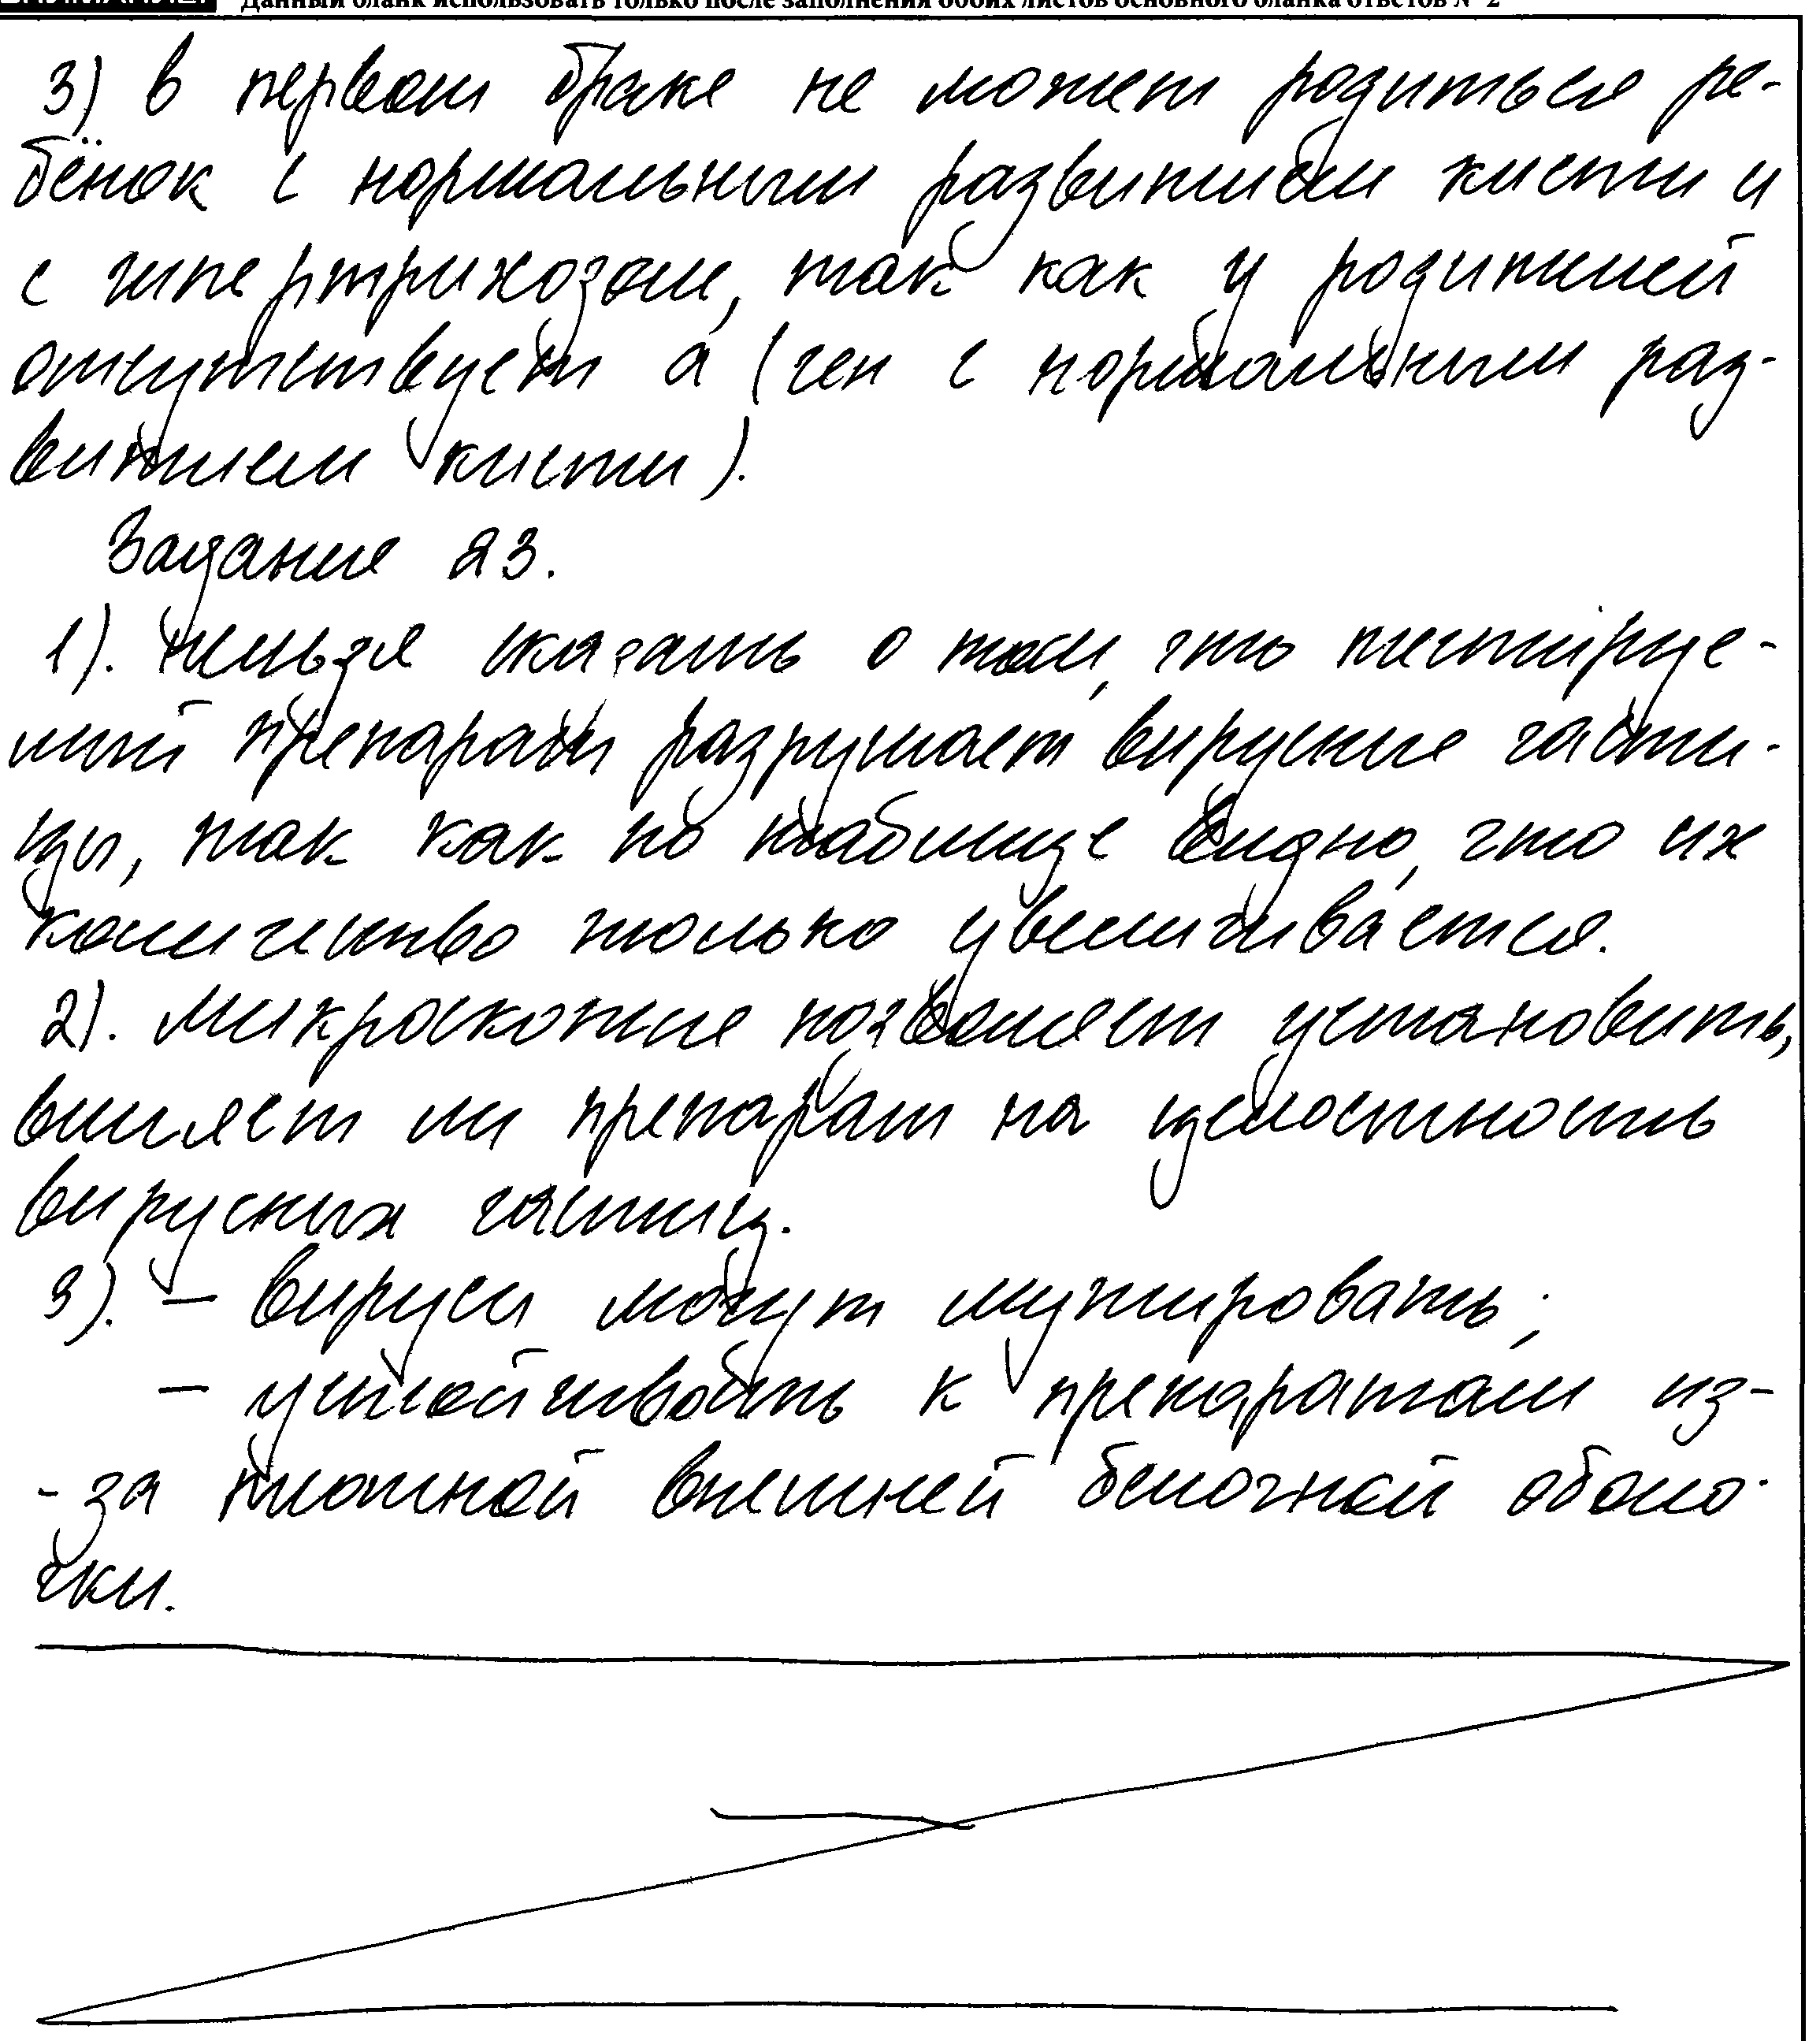 Данный бланк использовать только после заполнения обоих листов основного бланка ответов № 2
3) в первом браке не может родиться ре-
бёнок с нормальным развитием кисти и
с гипертрихозом, так как у родителей
отсутствует а (ген с нормальным раз-
витием кисти).
Задание 23.
1). нельзя сказать о том, что тестируе-
мый препарат разрушает вирусные части-
цы, так как по таблице видно, что их
количество только увеличивается.
2). Микроскопия позволяет установить,
влияет ли препарат на целостность
вирусных частиц.
3). – вирусы могут мутировать;
– устойчивость к препаратам из-
-за плотной внешней белочной оболо-
чки.